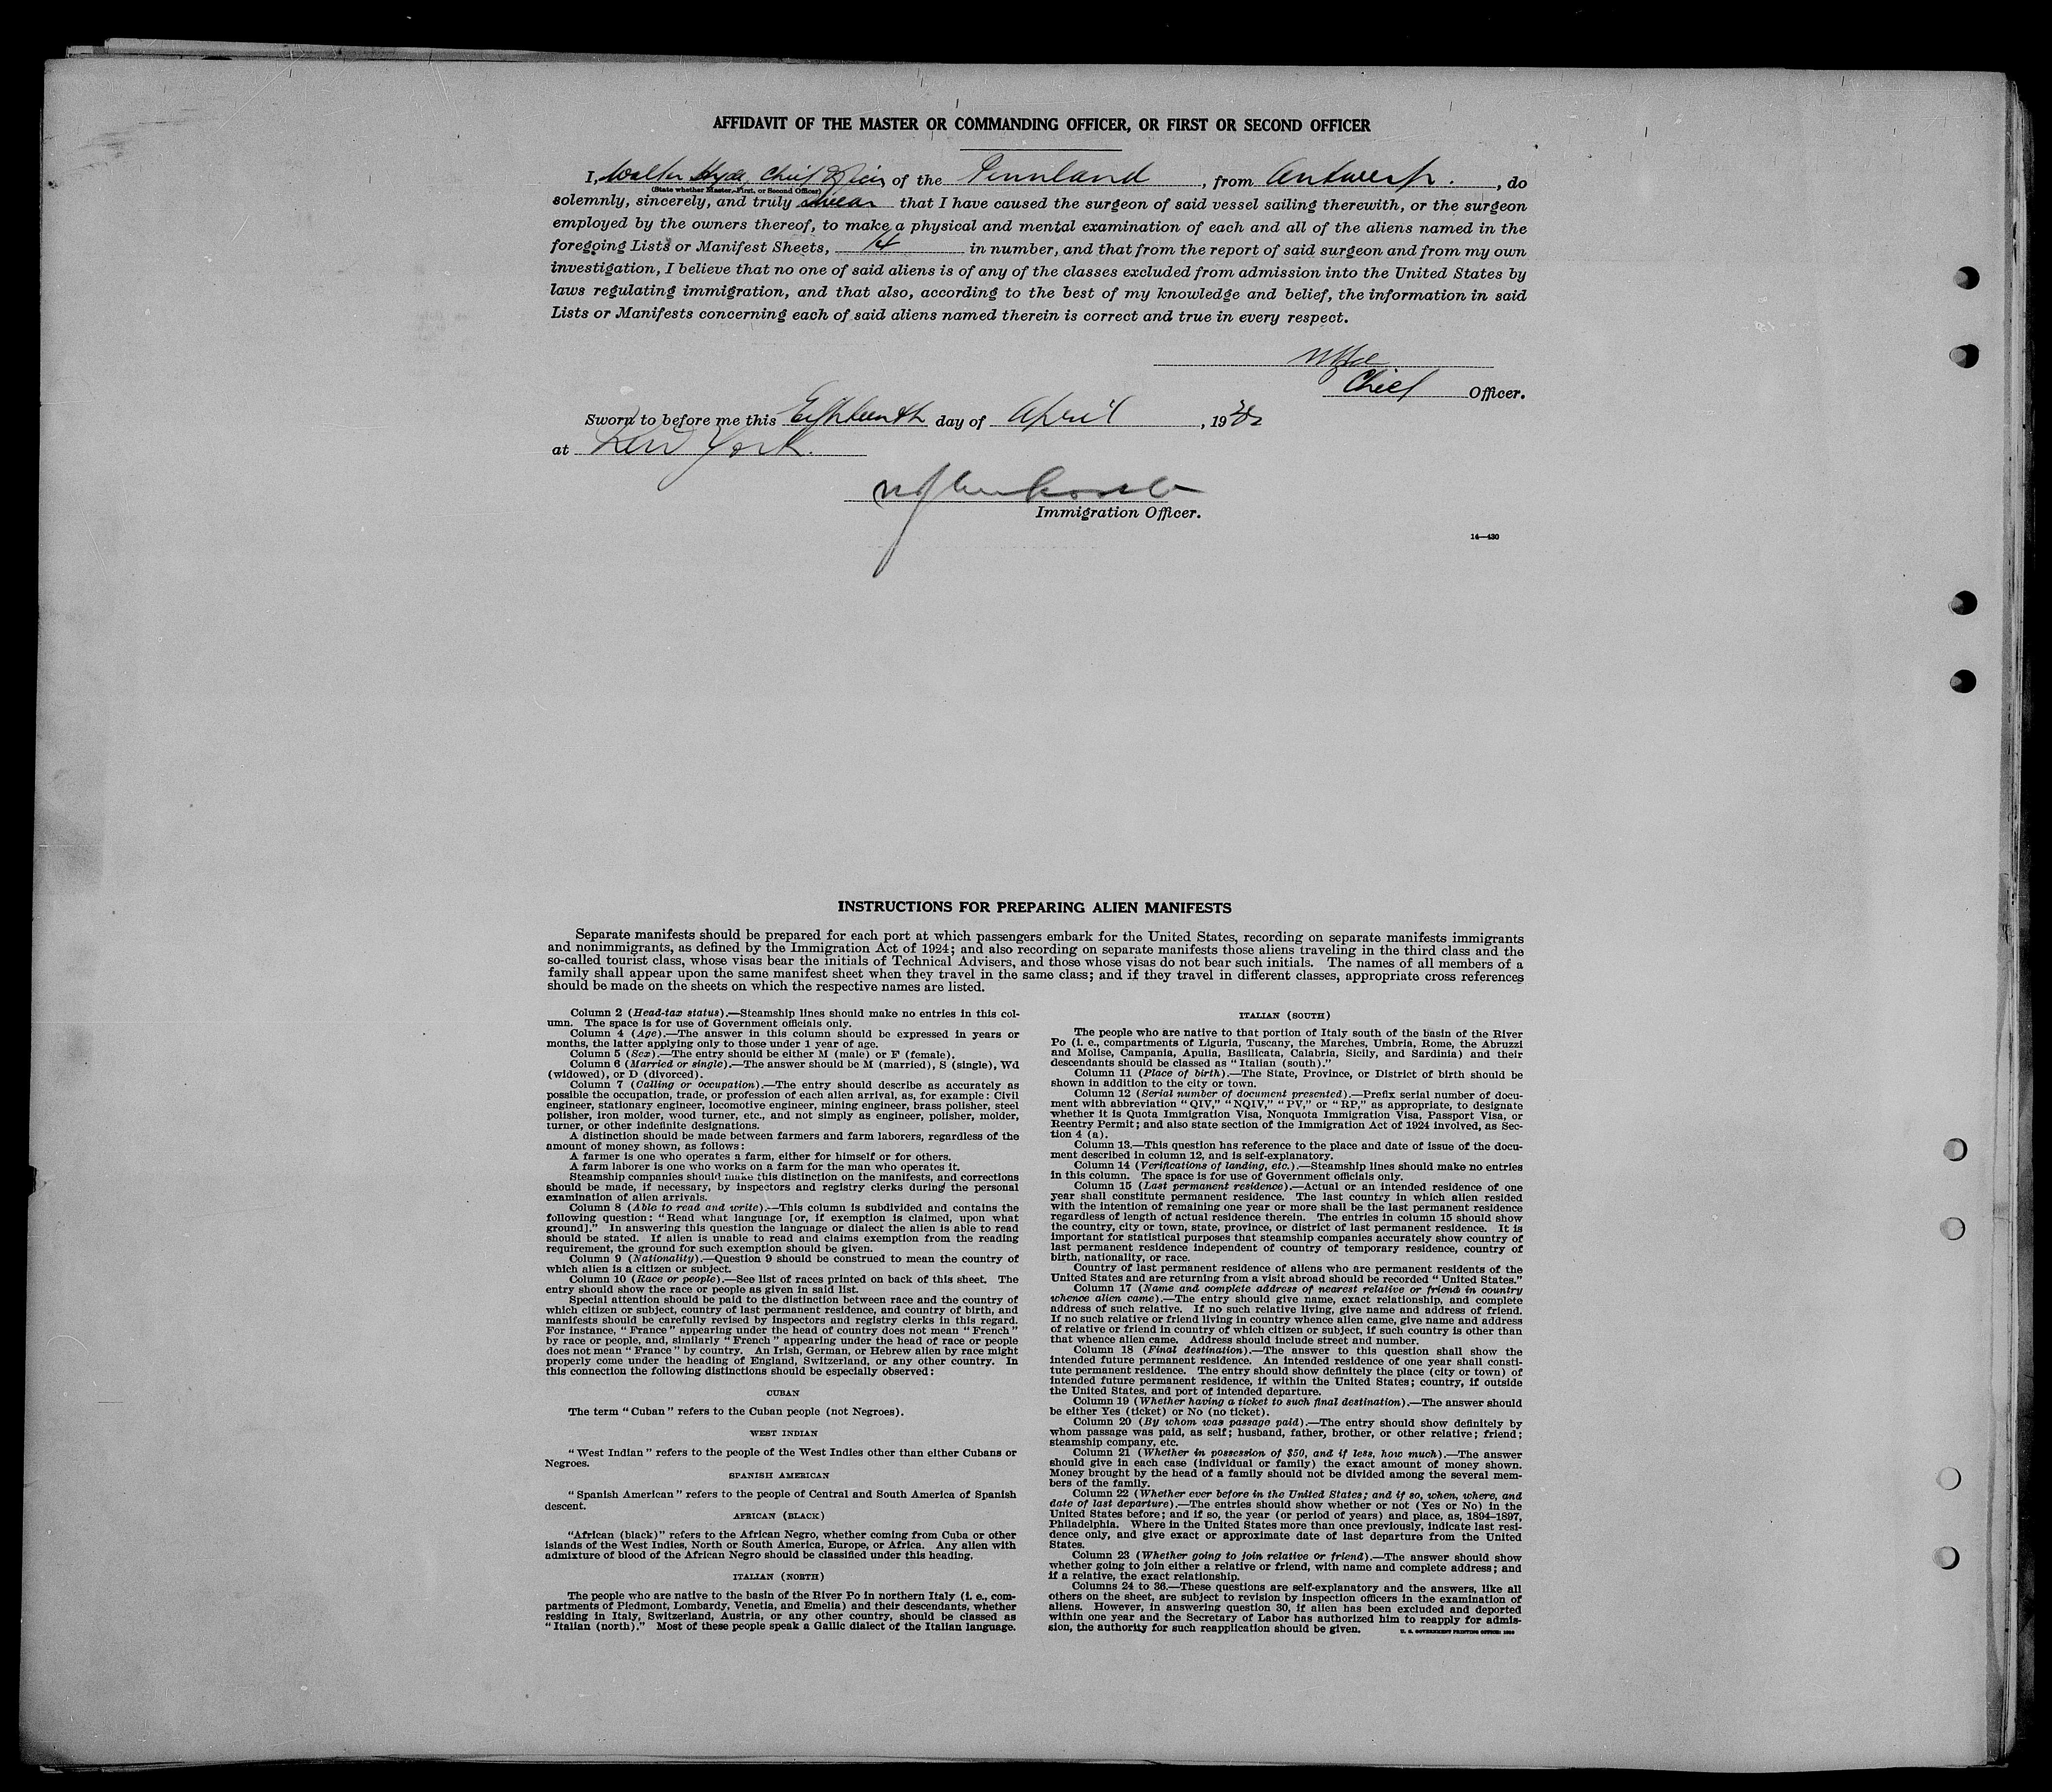 AFFIDAVIT OF THE MASTER OR COMMANDING OFFICER, OR FIRST OR SECOND OFFICER
I, Walter Hyde, Chief Officer of the Pennland, from Antwerp., do
(State whether Master, First, or Second Officer)
solemnly, sincerely, and truly swear that I have caused the surgeon of said vessel sailing therewith, or the surgeon
employed by the owners thereof, to make a physical and mental examination of each and all of the aliens named in the
foregoing Lists or Manifest Sheets, 14 in number, and that from the report of said surgeon and from my own
investigation, I believe that no one of said aliens is of any of the classes excluded from admission into the United States by
laws regulating immigration, and that also, according to the best of my knowledge and belief, the information in said
Lists or Manifests concerning each of said aliens named therein is correct and true in every respect.
Chief Officer.
Sworn to before me this Eighteenth day of April, 19
at New York.
Immigration Officer.
14—430
INSTRUCTIONS FOR PREPARING ALIEN MANIFESTS
Separate manifests should be prepared for each port at which passengers embark for the United States, recording on separate manifests immigrants
and nonimmigrants, as defined by the Immigration Act of 1924; and also recording on separate manifests those aliens traveling in the third class and the
so-called tourist class, whose visas bear the initials of Technical Advisers, and those whose visas do not bear such initials. The names of all members of a
family shall appear upon the same manifest sheet when they travel in the same class; and if they travel in different classes, appropriate cross references
should be made on the sheets on which the respective names are listed.
Column 2 (Head-tax status).—Steamship lines should make no entries in this col-
umn. The space is for use of Government officials only.
Column 4 (Age).—The answer in this column should be expressed in years or
months, the latter applying only to those under 1 year of age.
Column 5 (Sex).—The entry should be either M (male) or F (female).
Column 6 (Married or single).—The answer should be M (married), S (single), Wd
(widowed), or D (divorced).
Column 7 (Calling or occupation).—The entry should describe as accurately as
possible the occupation, trade, or profession of each alien arrival, as, for example: Civil
engineer, stationary engineer, locomotive engineer, mining engineer, brass polisher, steel
polisher, iron molder, wood turner, etc., and not simply as engineer, polisher, molder,
turner, or other indefinite designations.
A distinction should be made between farmers and farm laborers, regardless of the
amount of money shown, as follows:
A farmer is one who operates a farm, either for himself or for others.
A farm laborer is one who works on a farm for the man who operates it.
Steamship companies should make this distinction on the manifests, and corrections
should be made, if necessary, by inspectors and registry clerks during the personal
examination of alien arrivals.
Column 8 (Able to read and write).—This column is subdivided and contains the
following question: "Read what language [or, if exemption is claimed, upon what
ground]." In answering this question the language or dialect the alien is able to read
should be stated. If alien is unable to read and claims exemption from the reading
requirement, the ground for such exemption should be given.
Column 9 (Nationality).—Question 9 should be construed to mean the country of
which alien is a citizen or subject.
Column 10 (Race or people).—See list of races printed on back of this sheet. The
entry should show the race or people as given in said list.
Special attention should be paid to the distinction between race and the country of
which citizen or subject, country of last permanent residence, and country of birth, and
manifests should be carefully revised by inspectors and registry clerks in this regard.
For instance, "France" appearing under the head of country does not mean "French"
by race or people, and, similarly "French" appearing under the head of race or people
does not mean "France" by country. An Irish, German, or Hebrew alien by race might
properly come under the heading of England, Switzerland, or any other country. In
this connection the following distinctions should be especially observed:
CUBAN
The term "Cuban" refers to the Cuban people (not Negroes).
WEST INDIAN
"West Indian" refers to the people of the West Indies other than either Cubans or
Negroes.
SPANISH AMERICAN
"Spanish American" refers to the people of Central and South America of Spanish
descent.
AFRICAN (BLACK)
"African (black)" refers to the African Negro, whether coming from Cuba or other
islands of the West Indies, North or South America, Europe, or Africa. Any alien with
admixture of blood of the African Negro should be classified under this heading.
ITALIAN (NORTH)
The people who are native to the basin of the River Po in northern Italy (i. e., com-
partments of Piedmont, Lombardy, Venetia, and Emelia) and their descendants, whether
residing in Italy, Switzerland, Austria, or any other country, should be classed as
"Italian (north)." Most of these people speak a Gallic dialect of the Italian language.
ITALIAN (SOUTH)
The people who are native to that portion of Italy south of the basin of the River
Po (i. e., compartments of Liguria, Tuscany, the Marches, Umbria, Rome, the Abruzzi
and Molise, Campania, Apulia, Basilicata, Calabria, Sicily, and Sardinia) and their
descendants should be classed as "Italian (south)."
Column 11 (Place of birth).—The State, Province, or District of birth should be
shown in addition to the city or town.
Column 12 (Serial number of document presented).—Prefix serial number of docu-
ment with abbreviation "QIV," "NQIV," "PV," or "RP," as appropriate, to designate
whether it is Quota Immigration Visa, Nonquota Immigration Visa, Passport Visa, or
Reentry Permit; and also state section of the Immigration Act of 1924 involved, as Sec-
tion 4 (a).
Column 13.—This question has reference to the place and date of issue of the docu-
ment described in column 12, and is self-explanatory.
Column 14 (Verifications of landing, etc.).—Steamship lines should make no entries
in this column. The space is for use of Government officials only.
Column 15 (Last permanent residence).—Actual or an intended residence of one
year shall constitute permanent residence. The last country in which alien resided
with the intention of remaining one year or more shall be the last permanent residence
regardless of length of actual residence therein. The entries in column 15 should show
the country, city or town, state, province, or district of last permanent residence. It is
important for statistical purposes that steamship companies accurately show country of
last permanent residence independent of country of temporary residence, country of
birth, nationality, or race.
Country of last permanent residence of aliens who are permanent residents of the
United States and are returning from a visit abroad should be recorded "United States."
Column 17 (Name and complete address of nearest relative or friend in country
whence alien came).—The entry should give name, exact relationship, and complete
address of such relative. If no such relative living, give name and address of friend.
If no such relative or friend living in country whence alien came, give name and address
of relative or friend in country of which citizen or subject, if such country is other than
that whence alien came. Address should include street and number.
Column 18 (Final destination).—The answer to this question shall show the
intended future permanent residence. An intended residence of one year shall consti-
tute permanent residence. The entry should show definitely the place (city or town) of
intended future permanent residence, if within the United States; country, if outside
the United States, and port of intended departure.
Column 19 (Whether having a ticket to such final destination).—The answer should
be either Yes (ticket) or No (no ticket).
Column 20 (By whom was passage paid).—The entry should show definitely by
whom passage was paid, as self; husband, father, brother, or other relative; friend;
steamship company, etc.
Column 21 (Whether in possession of $50, and if less, how much).—The answer
should give in each case (individual or family) the exact amount of money shown.
Money brought by the head of a family should not be divided among the several mem-
bers of the family.
Column 22 (Whether ever before in the United States; and if so, when, where, and
date of last departure).—The entries should show whether or not (Yes or No) in the
United States before; and if so, the year (or period of years) and place, as, 1894–1897,
Philadelphia. Where in the United States more than once previously, indicate last resi-
dence only, and give exact or approximate date of last departure from the United
States.
Column 23 (Whether going to join relative or friend).—The answer should show
whether going to join either a relative or friend, with name and complete address; and
if a relative, the exact relationship.
Columns 24 to 36.—These questions are self-explanatory and the answers, like all
others on the sheet, are subject to revision by inspection officers in the examination of
aliens. However, in answering question 30, if alien has been excluded and deported
within one year and the Secretary of Labor has authorized him to reapply for admis-
sion, the authority for such reapplication should be given.
U. S. GOVERNMENT PRINTING OFFICE: